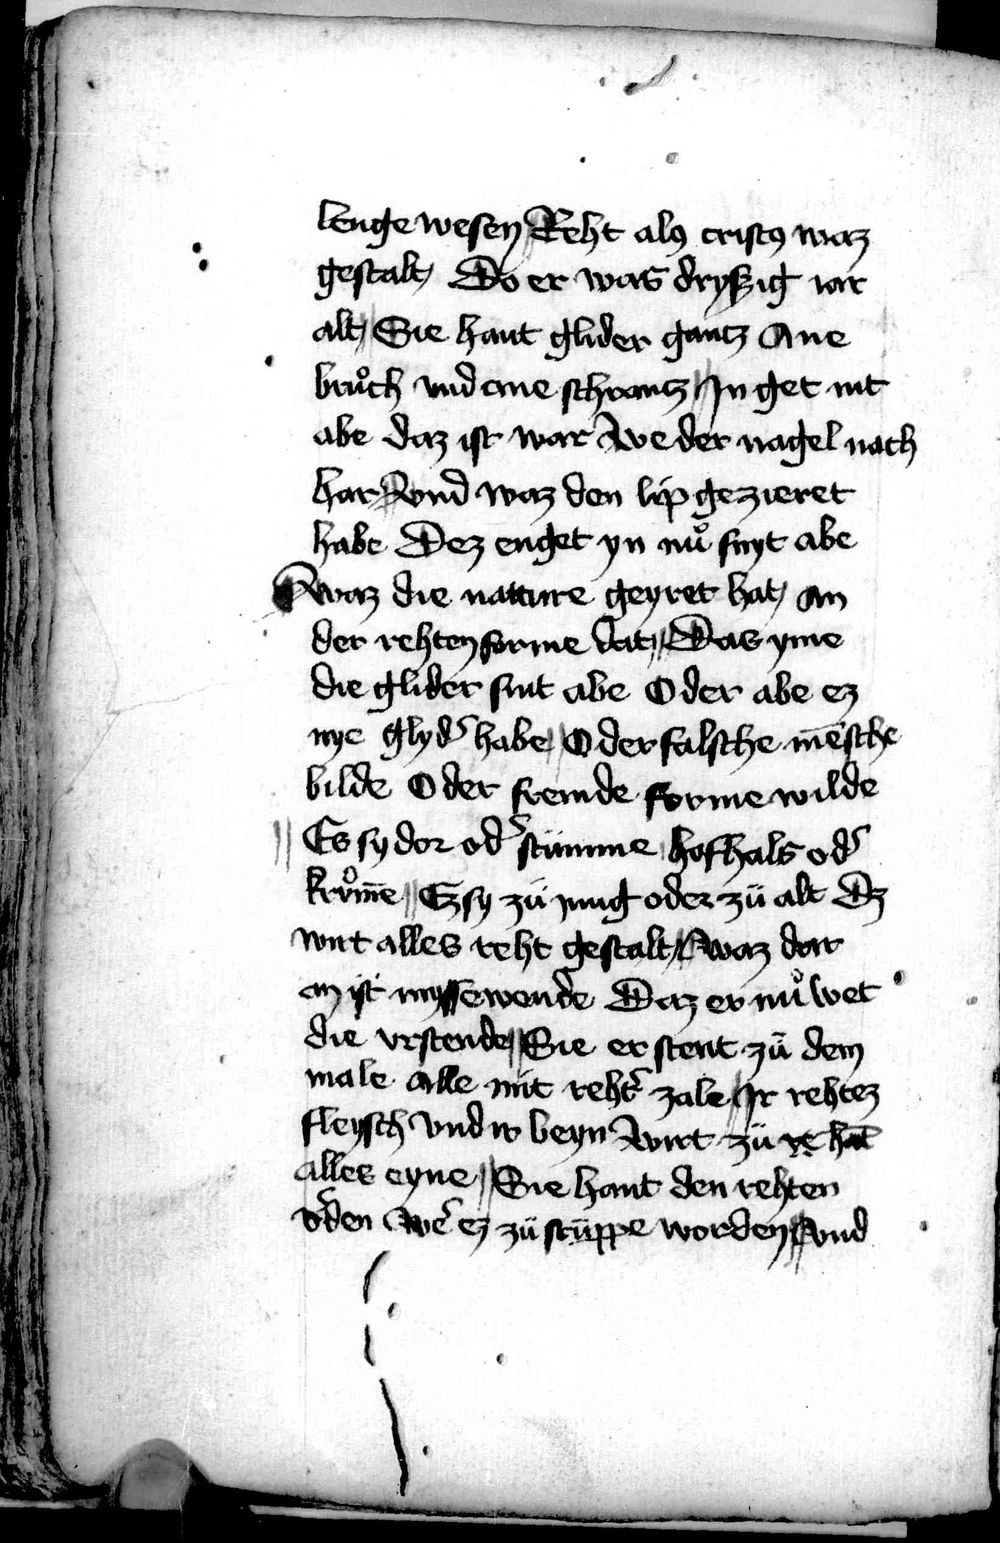 lenge wesen Reht als cristꝯ waz
gestalt Do er was dryssig iar
alt Sie hant glider gantz Ane
bruͦch vnd ane schrantz In get nit
abe daz ist war We der nagel nach
har Vnd waz den lip gezieret
habe Dez enget yn nuͦ snyt abe
Waz die nature geyret hat an
der rehten forme dat Das yme
die glider sint abe Oder abe ez
nye glyd' habe Oder falsche mēsche
bilde Oder fremde forme wilde
Es sy dor od' stümme hofhals od'
kruͦme Ez sy zü iung oder zü alt Dz
wirt alles reht gestalt Waz dar
an ist myssewende Daz er nuͦwet
die vrstende Sie erstent zü dem
male Alle mit reht' zale Ir rehtez
fleysch vnd ir beyn Wirt zü
alles eyne Sie hant den rehten
orden We' ez zü stüppe worden Vnd